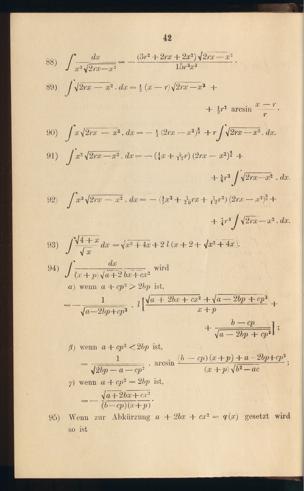 42
88) ∫ dx / x³√2rx—x² = — (3r² + 2rx + 2x²)√2rx—x² / 15r³x³ .
89) ∫ √2rx — x² . dx = ½ (x — r)√2rx—x² +
+ ½r² arcsin x — r / r .
90) ∫ x√2rx — x² . dx = — ⅓ (2rx — x²)^{3/2} + r∫ √2rx—x² . dx.
91) ∫ x²√2rx — x² . dx = — (¼x + 5/12 r)(2rx — x²)^{3/2} +
+ 5/4 r²∫ √2rx—x² . dx.
92) ∫ x³√2rx — x² . dx =
+ 7/4 r³∫ √2rx—x² . dx.
93) ∫ √4 + x / √x dx = √x² + 4x + 2 l (x + 2 + √x² + 4x).
94) ∫ dx / (x + p)√a+2bx+cx² wird
α) wenn a + cp² > 2bp ist,
= — 1 / √a—2bp+cp² . l [ √a + 2bx + cx² + √a — 2bp + cp² / x + p +
+ b — cp / √a — 2bp + cp² ] ;
β) wenn a + cp² < 2bp ist,
= 1 / √2bp — a — cp² . arcsin (b — cp)(x + p) + a - 2bp+cp² / (x + p)√b² — ac ;
γ) wenn a + cp² = 2bp ist,
= — √a + 2bx + cx² / (b—cp)(x+p) .
95) Wenn zur Abkürzung a + 2bx + cx² = φ(x) gesetzt wird
so ist